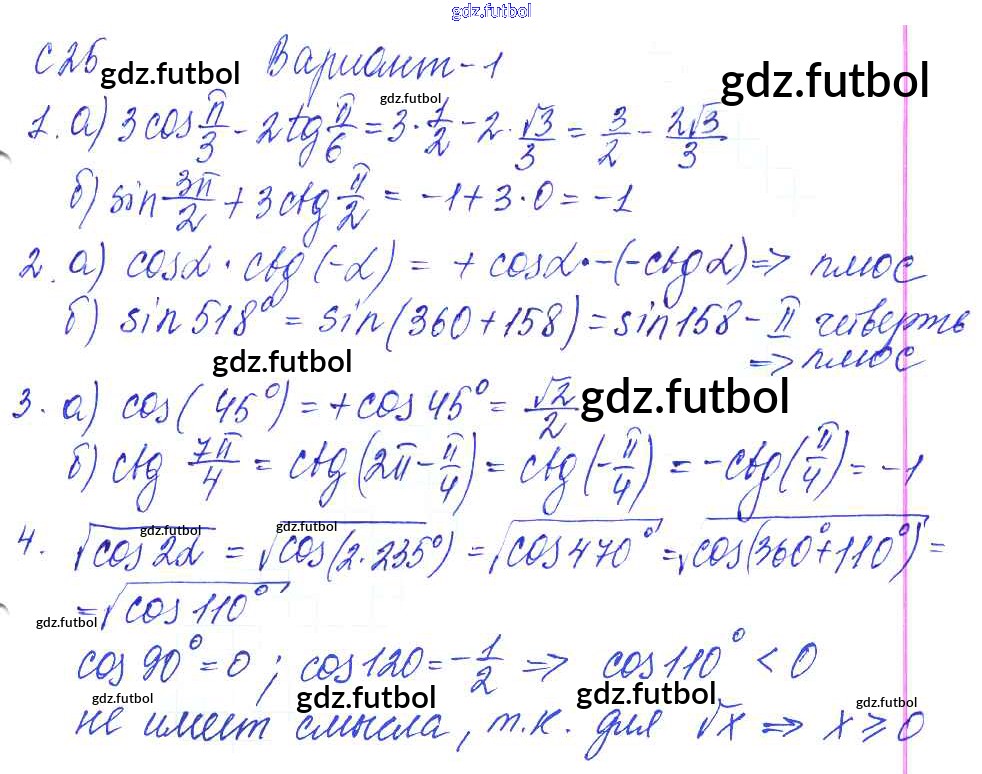 gdz.futbol
С 26 Вариант - 1
gdz.futbol gdz.futbol gdz.futbol
1. а) 3 cos π/3 - 2tg π/6 = 3 · 1/2 - 2 · √3/3 = 3/2 - 2√3/3
б) sin 3π/2 + 3ctg π/2 = -1 + 3 · 0 = -1
2. а) cosα · ctg (-α) = + cosα · -(-ctg α) => плюс
б) sin 518° = sin (360 + 158) = sin 158 - II четверть
=> плюс
gdz.futbol
3. а) cos ( 45°) = + cos 45° = √2/2
gdz.futbol
б) ctg 7π/4 = ctg (2π - π/4) = ctg (-π/4) = -ctg (π/4) = -1
gdz.futbol gdz.futbol
4. √cos 2α = √cos (2 · 235°) = √cos 470° = √cos (360° + 110°) =
= √cos 110°
gdz.futbol
cos 90° = 0 ; cos 120 = -1/2 => cos 110° < 0
gdz.futbol gdz.futbol gdz.futbol gdz.futbol
не имеет смысла, т.к. для √x => x ≥ 0